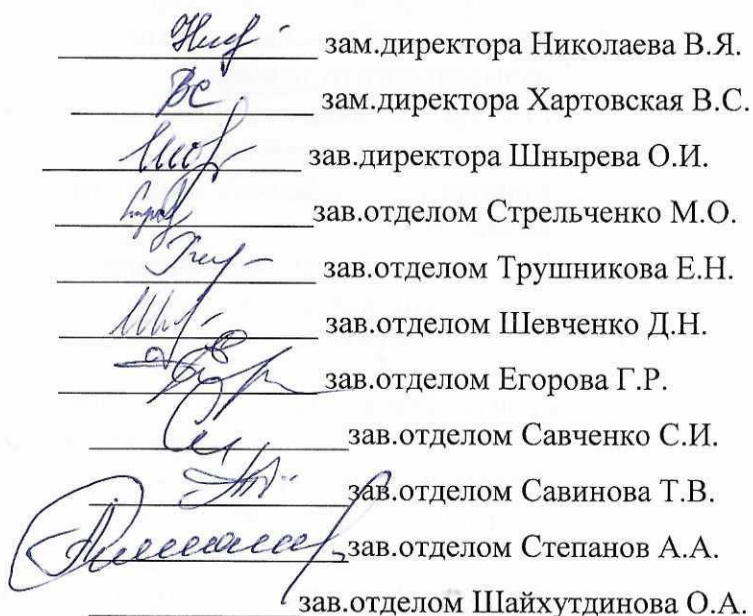 зам.директора Николаева В.Я.
зам.директора Хартовская В.С.
зав.директора Шнырева О.И.
зав.отделом Стрельченко М.О.
зав.отделом Трушникова Е.Н.
зав.отделом Шевченко Д.Н.
зав.отделом Егорова Г.Р.
зав.отделом Савченко С.И.
зав.отделом Савинова Т.В.
зав.отделом Степанов А.А.
зав.отделом Шайхутдинова О.А.